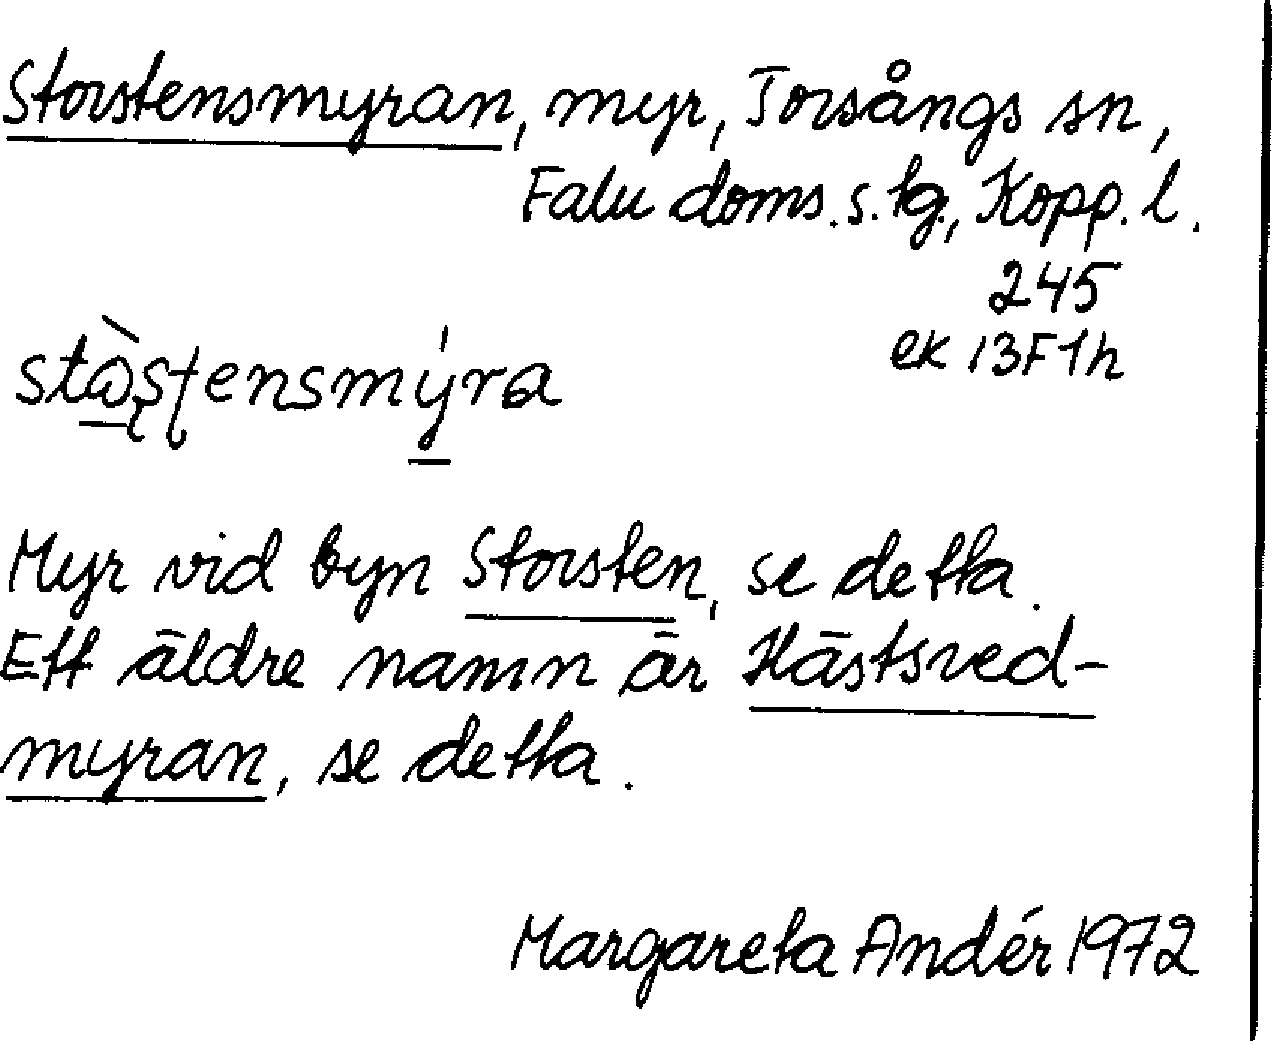 Storstensmyran, myr, Torsångs sn,
Falu doms.s. tg., Kopp. l.
245
ek 13F1h
Myr vid byn Storsten, se detta.
Ett äldre namn är Hästsved-
myran, se detta.
Margareta Andér 1972